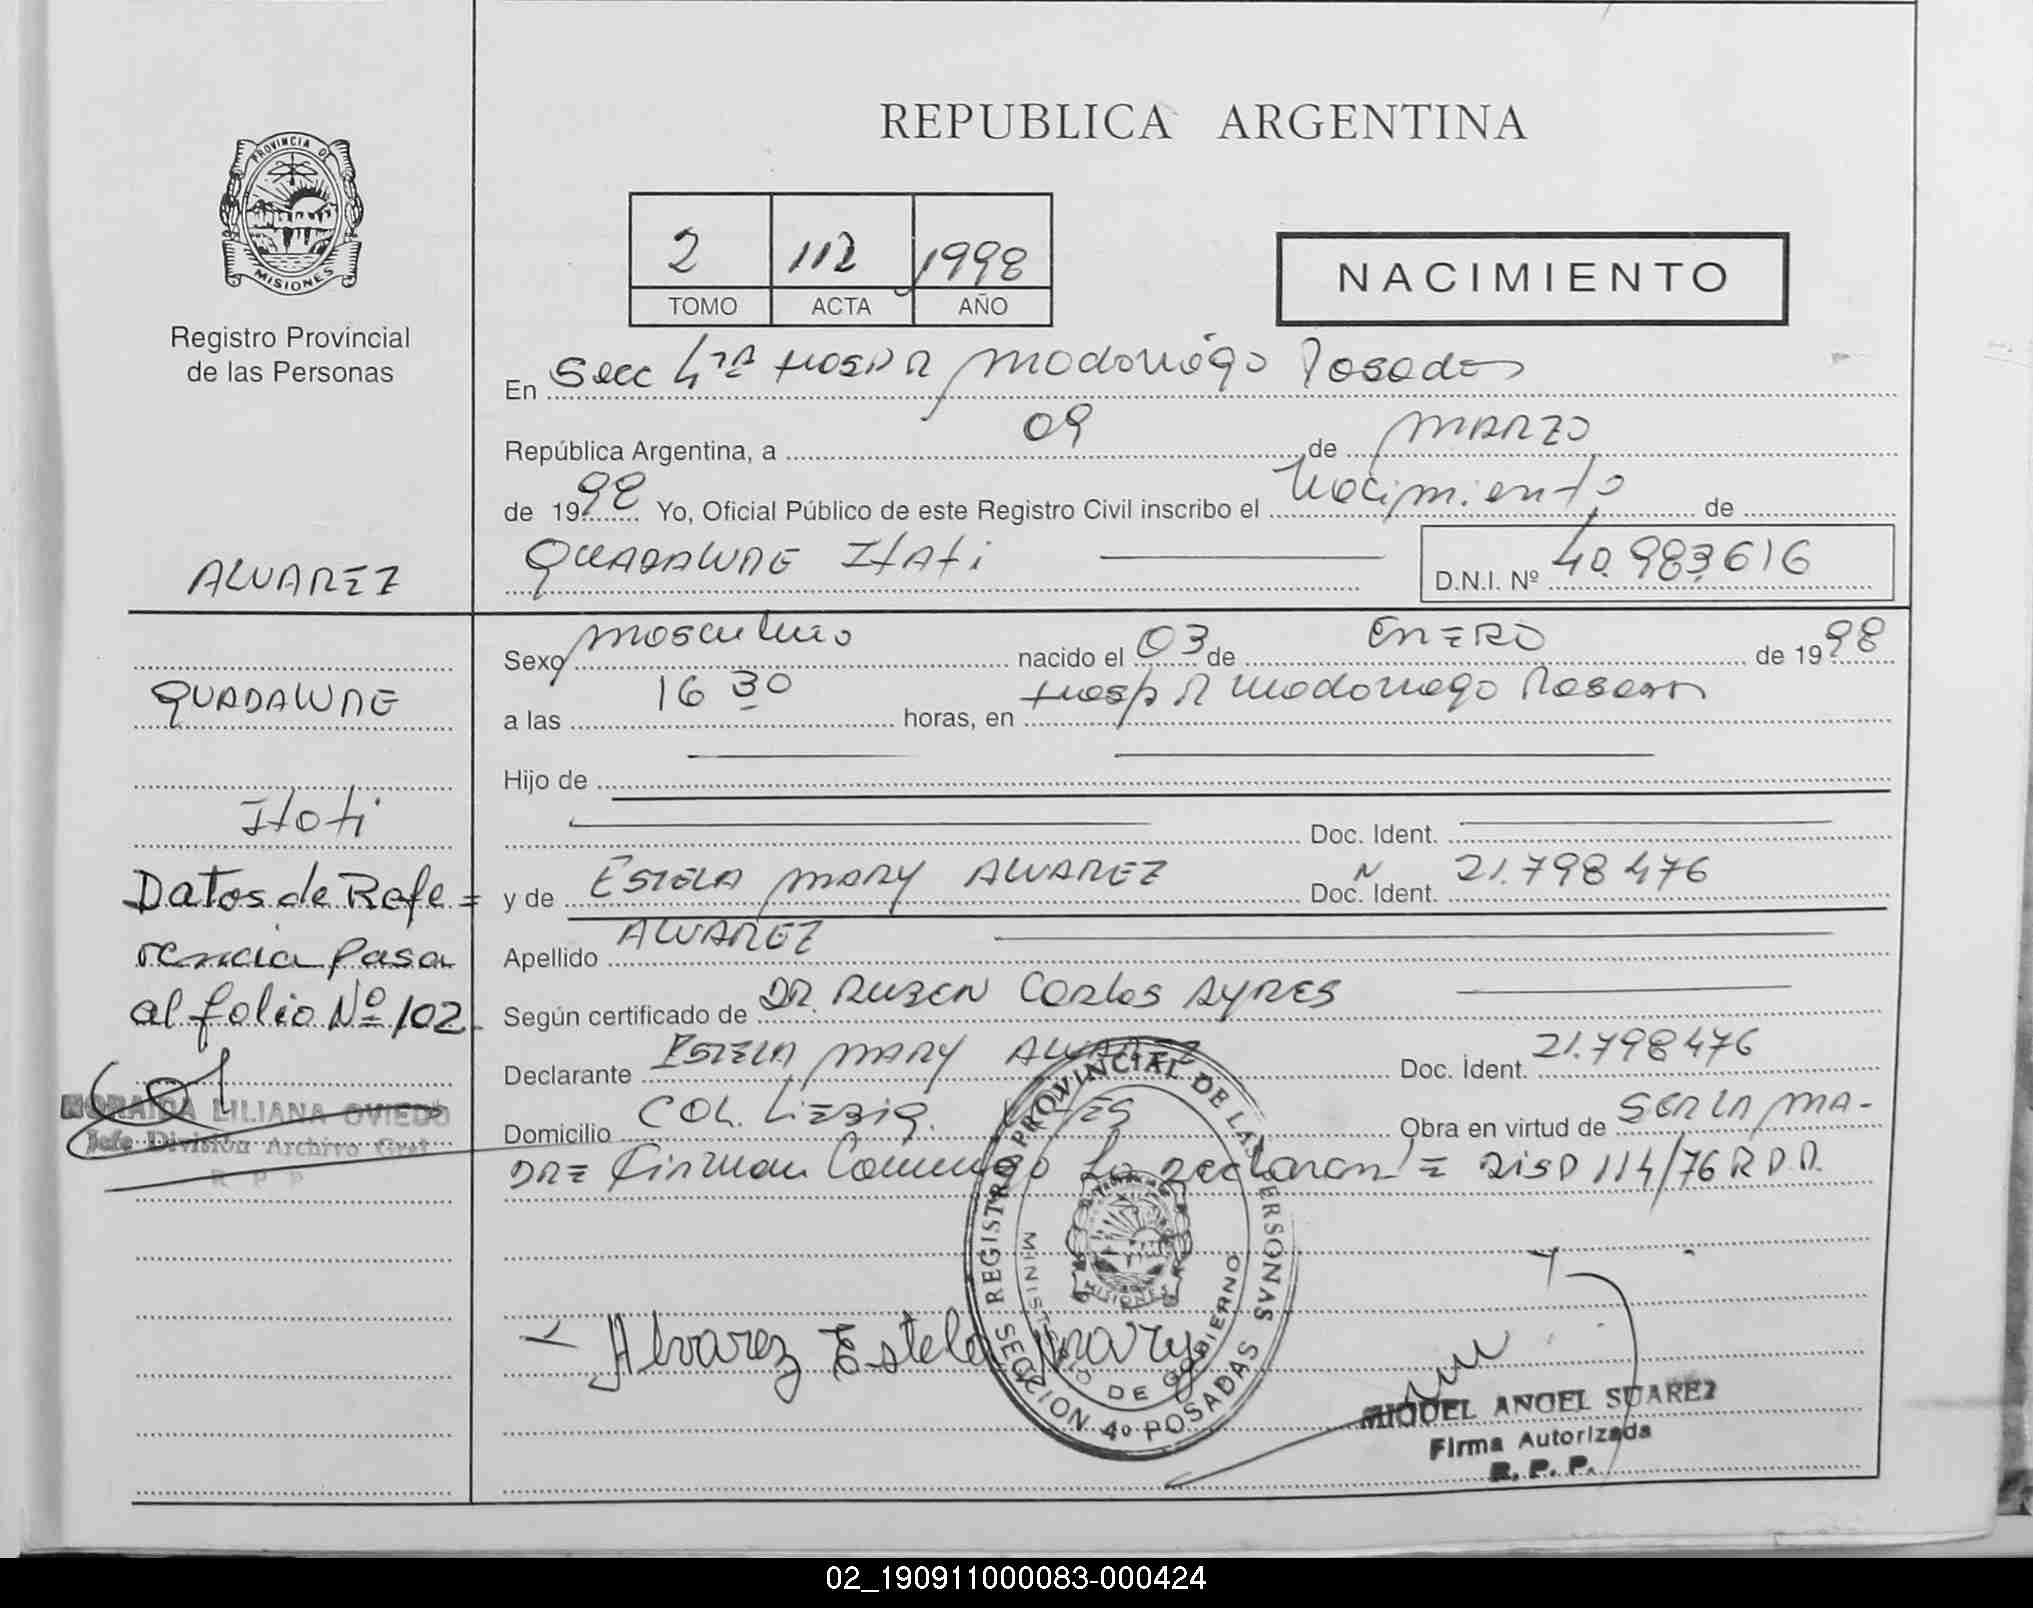 REPUBLICA ARGENTINA
PROVINCIA DE
MISIONES
Registro Provincial
de las Personas
2 112 1998
TOMO ACTA AÑO
NACIMIENTO
En Secc 4ta Hosp R Madariaga Posadas
República Argentina, a 09 de MARZO
de 1998 Yo, Oficial Público de este Registro Civil inscribo el Nacimiento de
GUADALUPE Itati D.N.I. Nº 40.983.616
ALVAREZ
GUADALUPE
Itati
Datos de Refe=
rencia Pasa
al folio Nº 102.
NORAIDA LILIANA OVIEDO
Jefe División Archivo Gral
R P P
Sexo masculino nacido el 03 de ENERO de 1998
a las 16 30 horas, en Hosp R Madariaga Posadas
Hijo de
Doc. Ident.
y de ESTELA MARY ALVAREZ Doc. Ident. N 21.798476
Apellido ALVAREZ
Según certificado de DR. RUBEN Carlos AYRES
Declarante ESTELA MARY ALVAREZ Doc. Ident. 21.798476
Domicilio COL. Liebig. Obra en virtud de SER LA MA-
DRE Firman Conmigo La declaran = DISP 114/76 R.P.P.
Alvarez Estela Mary
REGISTRO PROVINCIAL DE LAS PERSONAS
MINISTERIO DE GOBIERNO
MISIONES
SECCION 4º POSADAS
MIGUEL ANGEL SUAREZ
Firma Autorizada
R. P. P.
02_190911000083-000424